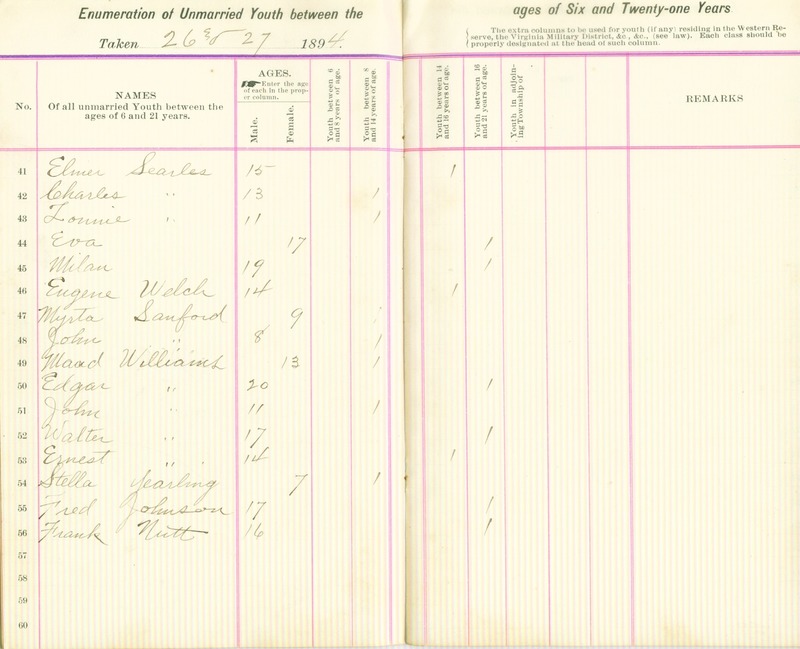 Enumeration of Unmarried Youth between the ages of Six and Twenty-one Years
Taken 26 & 27 1894.
The extra columns to be used for youth (if any: residing in the Western Re-
serve, the Virginia Military District, &c., &c., (see law). Each class should be
properly designated at the head of such column.
No.
NAMES
Of all unmarried Youth between the
ages of 6 and 21 years.
AGES.
Enter the age
of each in the prop-
er column.
Male.
Female.
Youth between 6
and 8 years of age.
Youth between 8
and 14 years of age.
Youth between 14
and 16 years of age.
Youth between 16
and 21 years of age.
Youth in adjoin-
ing Township of
REMARKS
41 Elmer Searles 15 1
42 Charles " 13 1
43 Lonnie " 11 1
44 Eva 17 1
45 Milan 19 1
46 Eugene Welch 14 1
47 Myrta Sanford 9 1
48 John " 8 1
49 Maud Williams 13 1
50 Edgar " 20 1
51 John " 11 1
52 Walter " 17 1
53 Ernest " 14 1
54 Stella Yearling 7 1
55 Fred Johnson 17 1
56 Frank Nutt 16 1
57
58
59
60